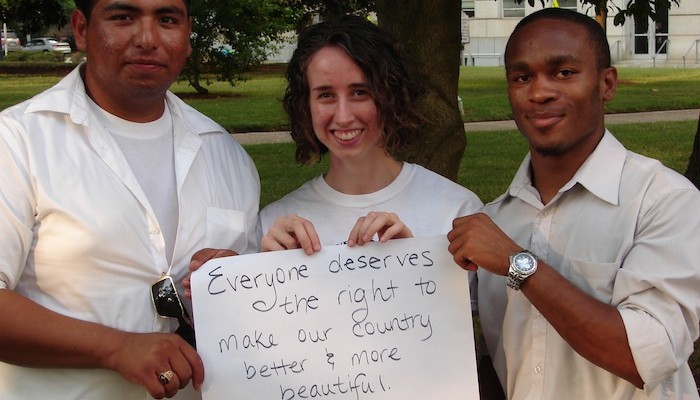 Everyone deserves
the right to
make our country
better & more
beautiful.